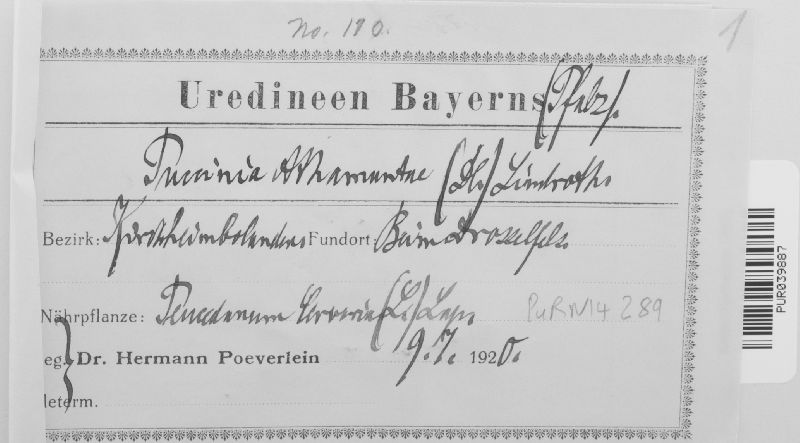 No. 190.
1
Uredineen Bayerns (Pfalz).
Puccinia Athamantae (DC.) Lindroth.
Bezirk: Kirchheimbolanden Fundort: Beim Drosselfels.
Nährpflanze: Peucedanum Cervaria (L.) Lap.
PUR N14 289
eg. Dr. Hermann Poeverlein 9.7. 1920.
leterm.
PUR039887